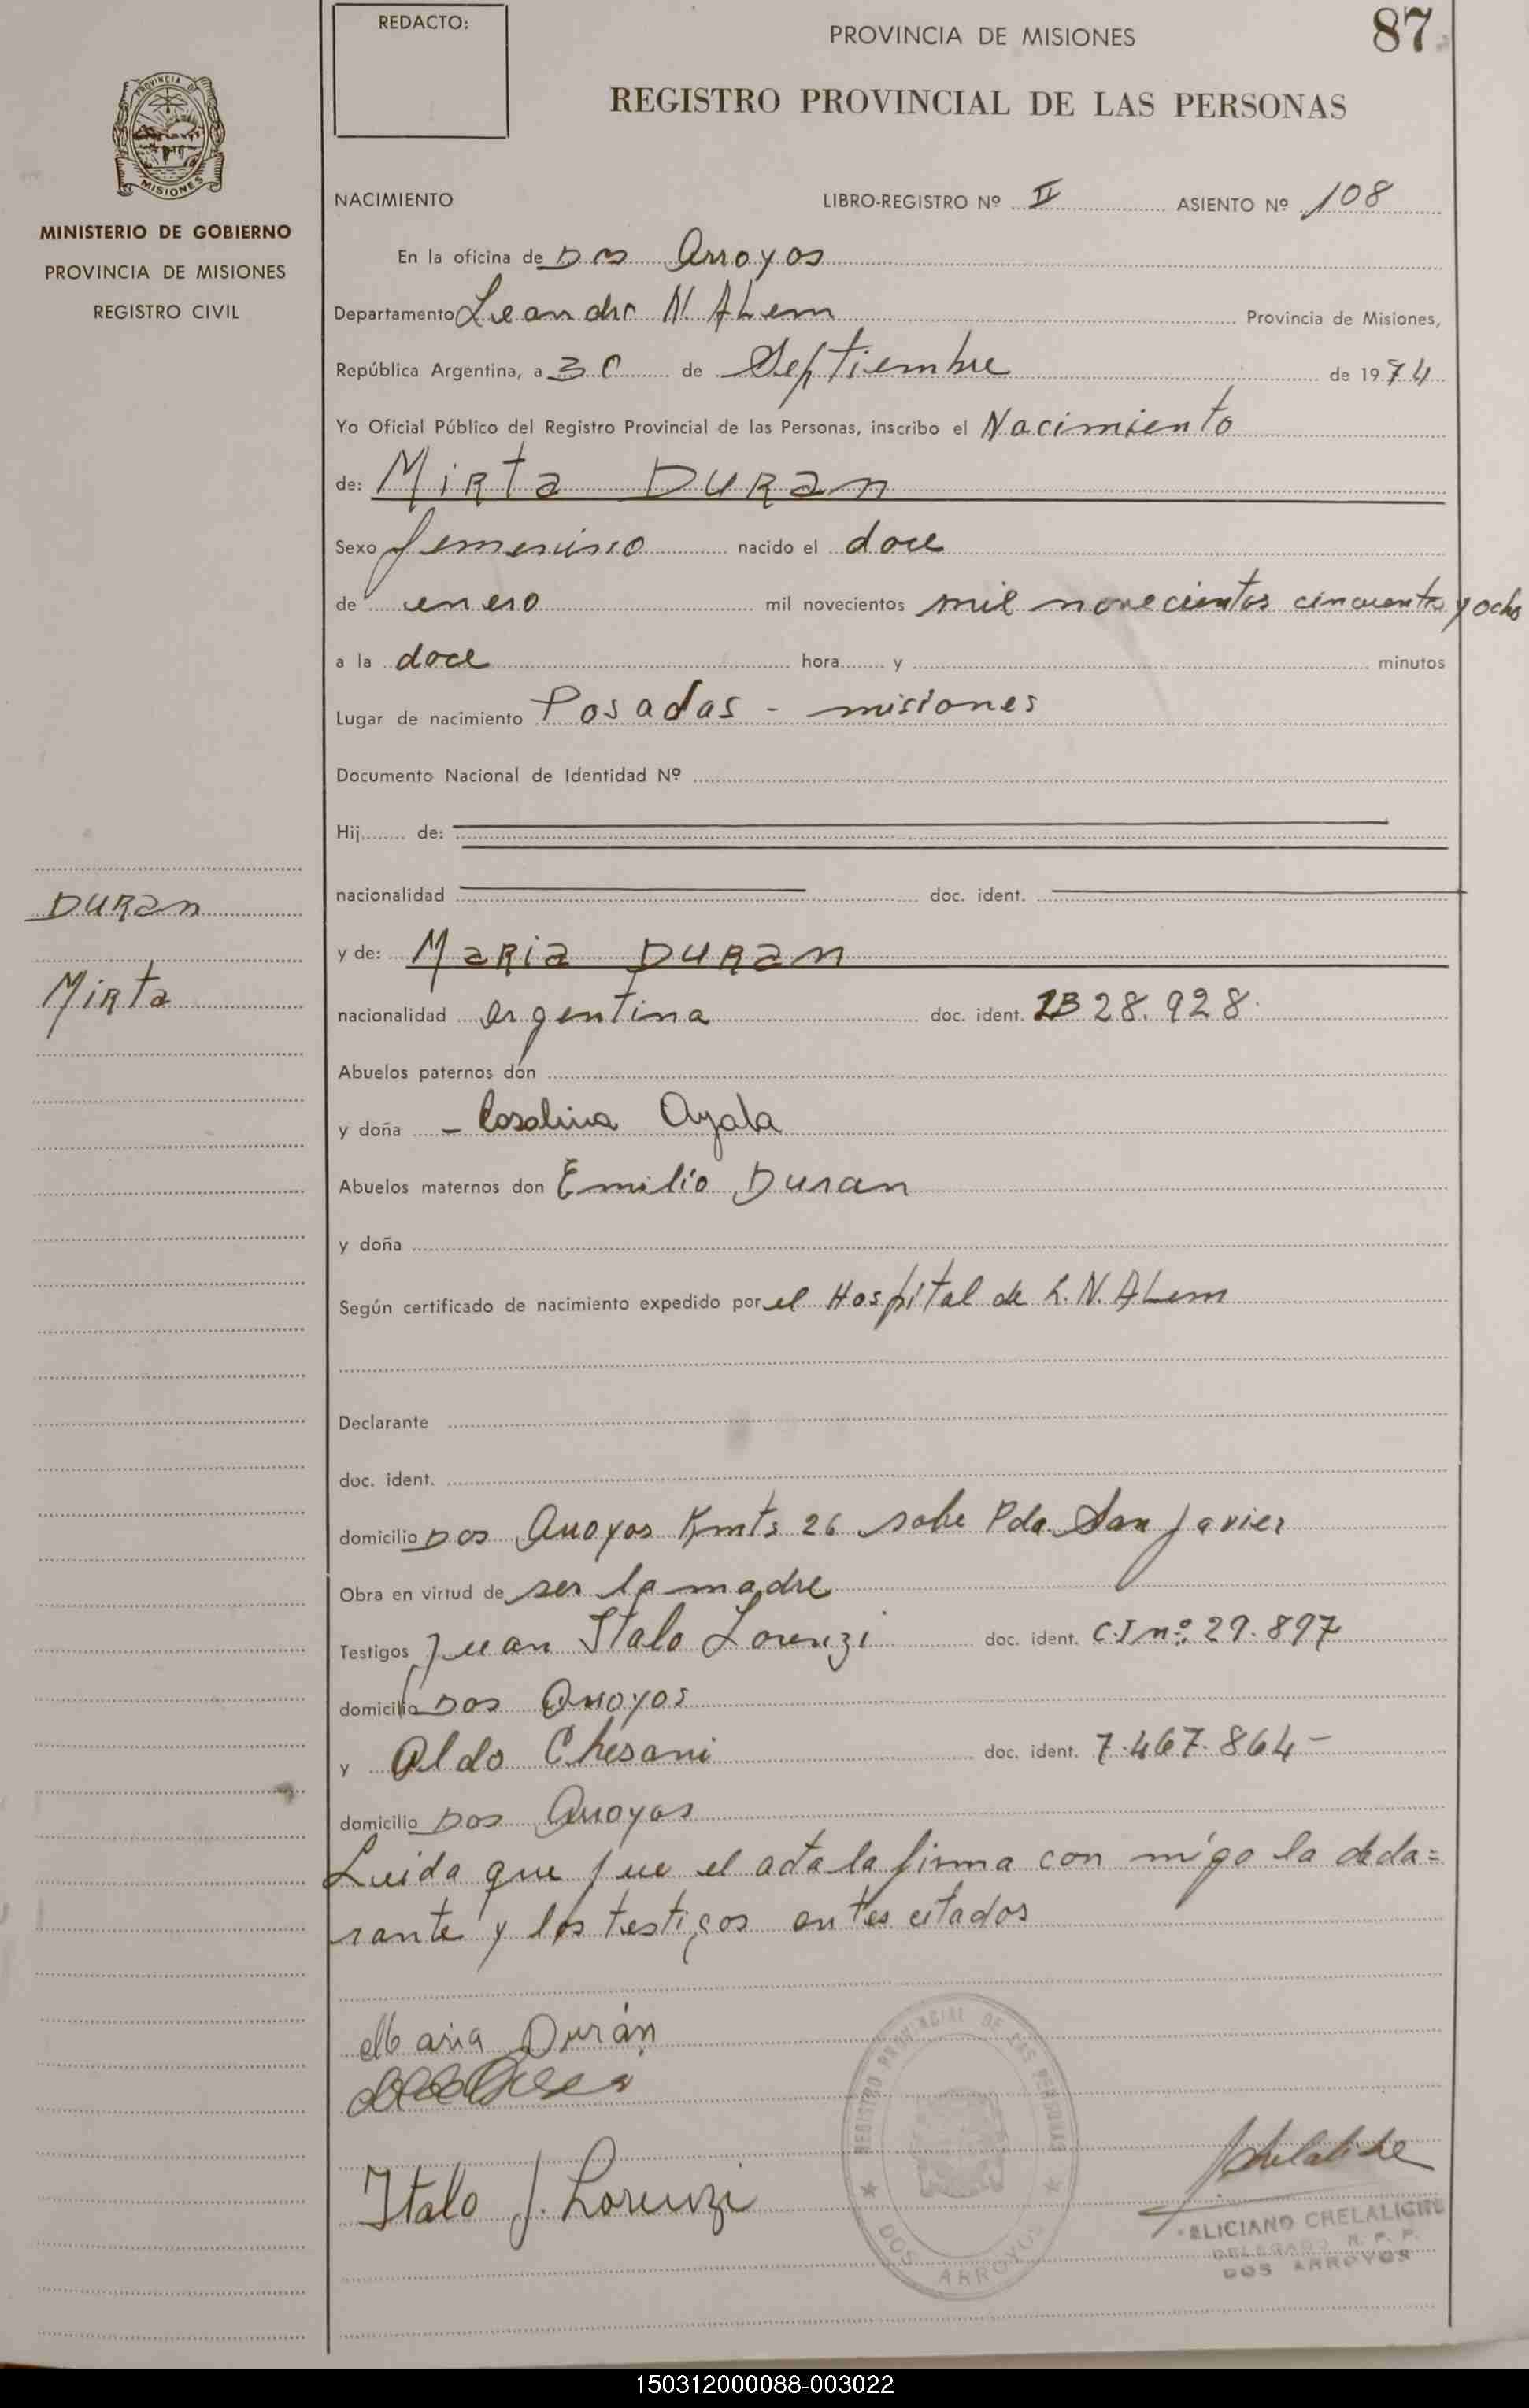 REDACTO:
PROVINCIA DE MISIONES
87
REGISTRO PROVINCIAL DE LAS PERSONAS
PROVINCIA DE
MISIONES
MINISTERIO DE GOBIERNO
PROVINCIA DE MISIONES
REGISTRO CIVIL
NACIMIENTO LIBRO-REGISTRO Nº II ASIENTO Nº 108
En la oficina de Dos Arroyos
Departamento Leandro N. ALem Provincia de Misiones,
República Argentina, a 30 de Septiembre de 1974
Yo Oficial Público del Registro Provincial de las Personas, inscribo el Nacimiento
de: Mirta DURAN
Sexo femenino nacido el doce
de enero mil novecientos mil novecientos cincuenta y ocho
a la doce hora y minutos
Lugar de nacimiento Posadas - misiones
Documento Nacional de Identidad Nº
Hij de:
nacionalidad doc. ident.
DURAN
y de: MARIA DURAN
Mirta
nacionalidad argentina doc. ident. 28.928.
Abuelos paternos don
y doña - Ayala
Abuelos maternos don Emilio Duran
y doña
Según certificado de nacimiento expedido por el Hospital de L.N. ALem
Declarante
doc. ident.
domicilio Dos Arroyos Kmts 26 sobre Pda San Javier
Obra en virtud de ser la madre
Testigos Juan Italo Lorenzi doc. ident. C.I nº. 29.897
domicilio Dos Arroyos
y Aldo Chesani doc. ident. 7.467.864-
domicilio Dos Arroyos
Leida que fue el acta la firma con migo la decla=
rante y los testigos antes citados
Maria Durán
Italo J. Lorenzi
REGISTRO PROVINCIAL DE LAS PERSONAS
DOS ARROYOS
FELICIANO CHELALICHE
DELEGADO R. P. P.
DOS ARROYOS
150312000088-003022